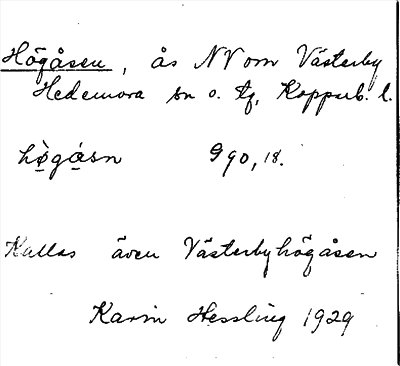 Högåsen, ås NV om Västerby
Hedemora sn o. tg, Kopparb. l.
hø̀gåsn 990, 18.
Kallas även Västerbyhögåsen
Karin Hessling 1929